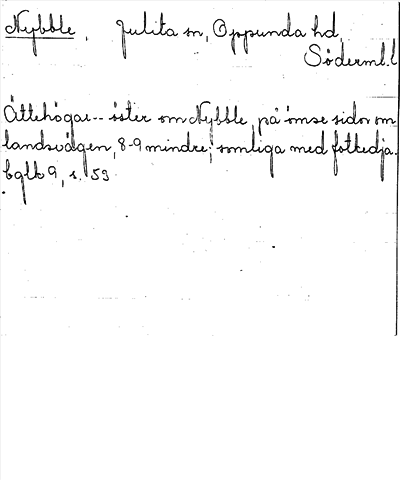 Nybble, Julita sn, Oppunda hd,
Söderml.l
Ättehögar-- öster om Nybble, på ömse sidor om
landsvägen, 8-9 mindre, somliga med fotkedja.
bglb 9, s. 53